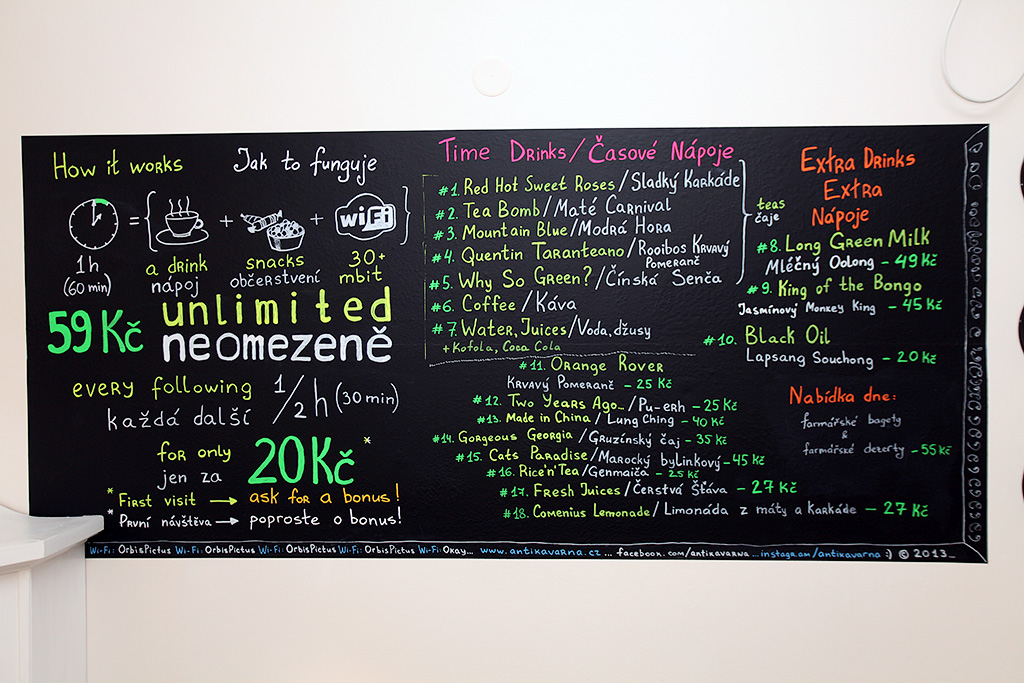 How it works
Jak to funguje
= { + + WiFi }
1h
(60 min)
a drink
nápoj
snacks
občerstvení
30+
mbit
59 Kč
unlimited
neomezeně
every following
každá další
1/2 h (30 min)
for only
jen za
20 Kč *
* First visit → ask for a bonus!
* První návštěva → poproste o bonus!
Time Drinks / Časové Nápoje
#1. Red Hot Sweet Roses / Sladký Karkáde
#2. Tea Bomb / Maté Carnival
#3. Mountain Blue / Modrá Hora
#4. Quentin Taranteano / Rooibos Krvavý
Pomeranč
#5. Why So Green? / Čínská Senča
teas
čaje
#6. Coffee / Káva
#7. Water, Juices / Voda, džusy
+ Kofola, Coca Cola
#11. Orange Rover
Krvavý Pomeranč - 25 Kč
#12. Two Years Ago... / Pu-erh - 25 Kč
#13. Made in China / Lung Ching - 40 Kč
#14. Gorgeous Georgia / Gruzínský čaj - 35 Kč
#15. Cats Paradise / Marocký bylinkový - 45 Kč
#16. Rice'n'Tea / Genmaiča - 25 Kč
#17. Fresh Juices / Čerstvá Šťáva - 27 Kč
#18. Comenius Lemonade / Limonáda z máty a Karkáde - 27 Kč
Extra Drinks
Extra
Nápoje
#8. Long Green Milk
Mléčný Oolong - 49 Kč
#9. King of the Bongo
Jasmínový Monkey King - 45 Kč
#10. Black Oil
Lapsang Souchong - 20 Kč
Nabídka dne:
farmářské bagety
&
farmářské dezerty - 55 Kč
Wi-Fi: OrbisPictus Wi-Fi: OrbisPictus Wi-Fi: OrbisPictus Wi-Fi: OrbisPictus Wi-Fi: Okay... www.antikavarna.cz ... facebook.com/antikavarna ... instagram/antikavarna :) © 2013_